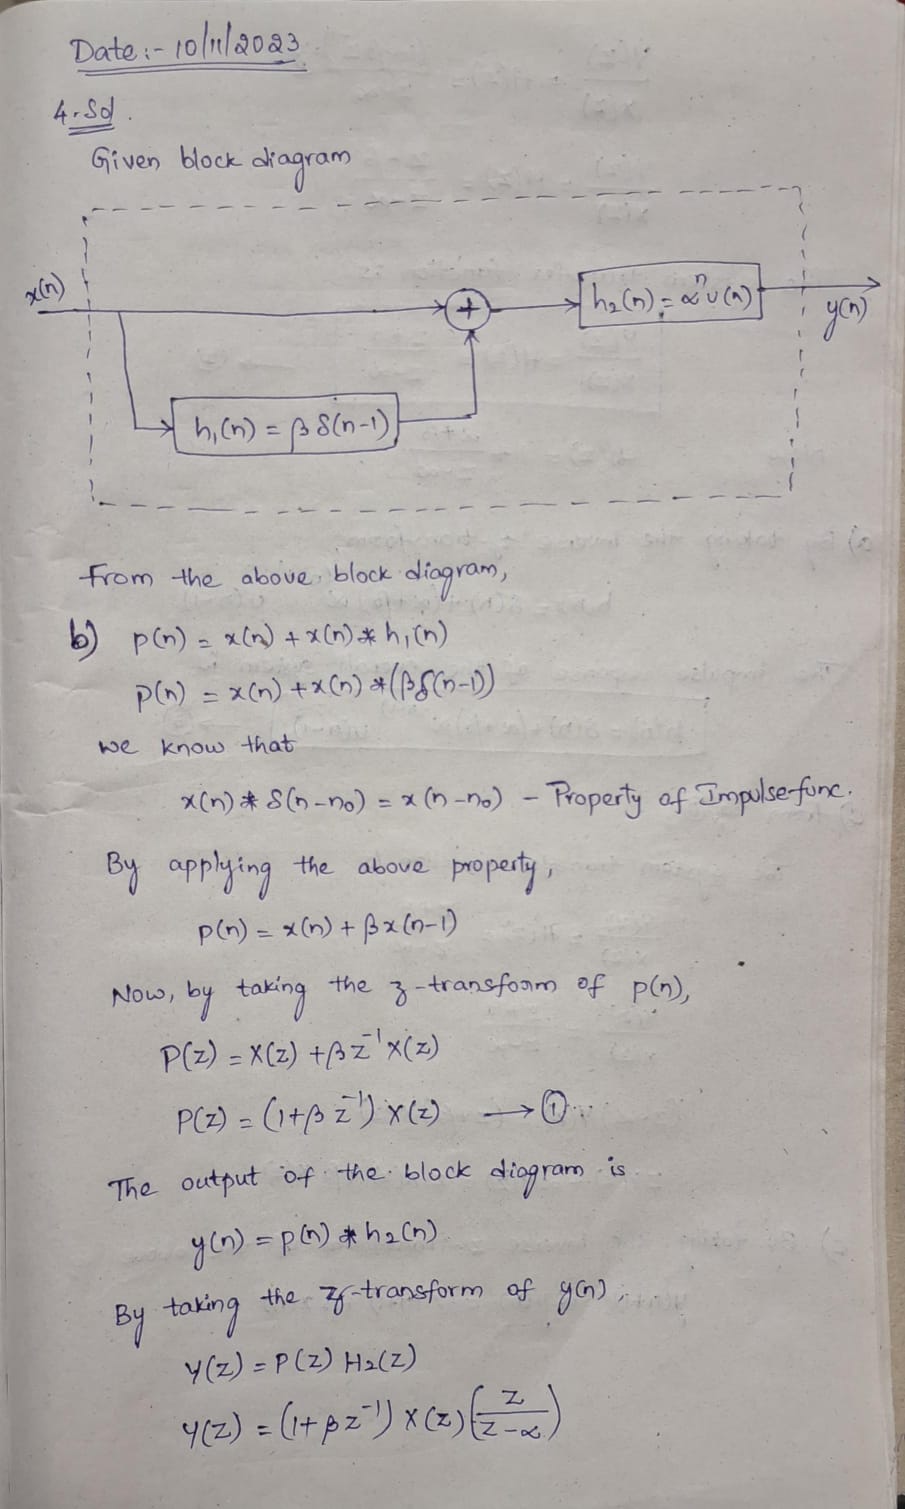 Date :- 10/11/2023
4. Sol.
Given block diagram
x(n)
+
h₂(n) = αⁿ u(n)
y(n)
h₁(n) = β δ(n-1)
From the above block diagram,
b) p(n) = x(n) + x(n) * h₁(n)
p(n) = x(n) + x(n) * (β δ(n-1))
we know that
x(n) * δ(n-n₀) = x(n-n₀) - Property of Impulse func.
By applying the above property,
p(n) = x(n) + β x(n-1)
Now, by taking the z-transform of p(n),
P(z) = X(z) + β z⁻¹ X(z)
P(z) = (1+β z⁻¹) X(z) → ①
The output of the block diagram is
y(n) = p(n) * h₂(n)
By taking the z-transform of y(n),
Y(z) = P(z) H₂(z)
Y(z) = (1+ β z⁻¹) X(z) (z/(z-α))